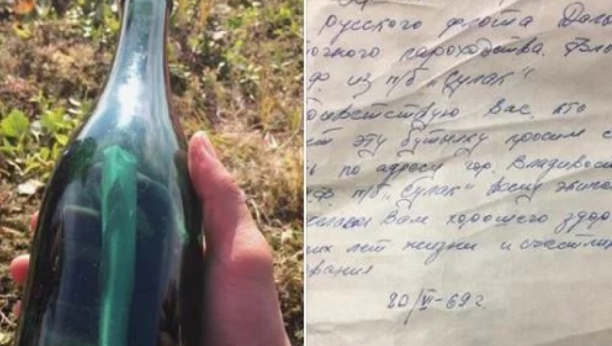 русского флота Даль
очного пароходства. Вла
из т/б "Сулак"
Вас, кто
ет эту бутылку просим с
ь по адресу гор. Владивос
т/б "Сулак" всему экипа
Вам хорошего здор
их лет жизни и счастли
20/VI-69 г.